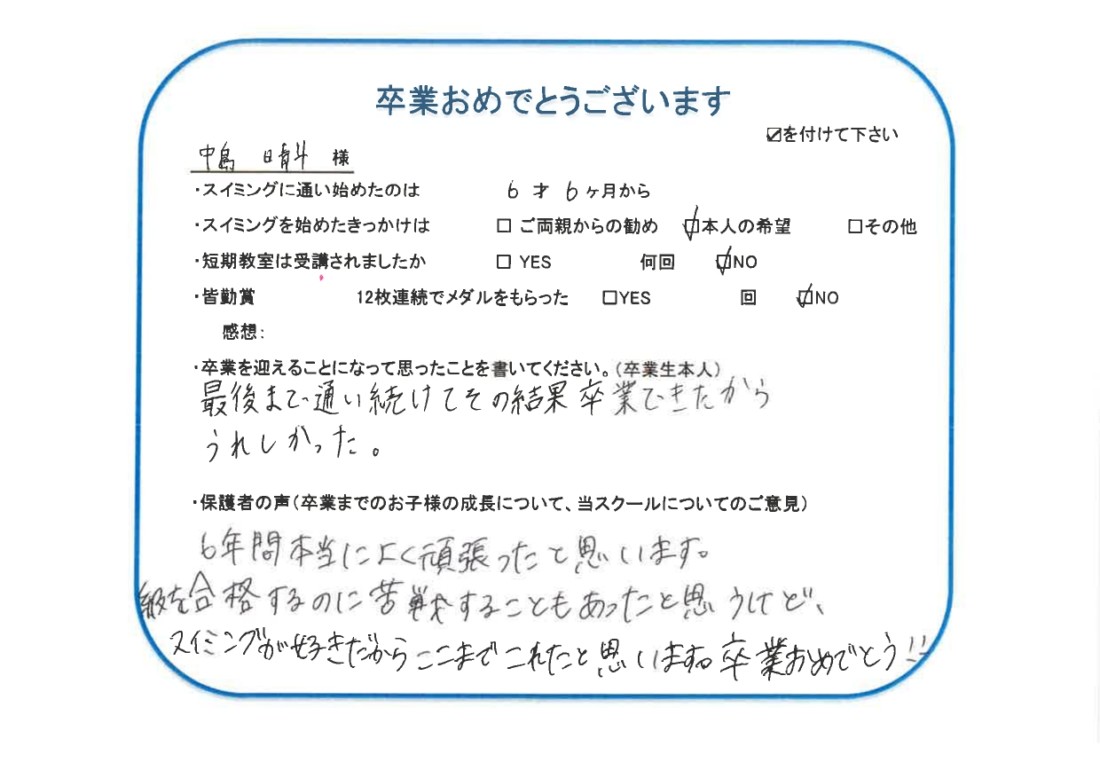 卒業おめでとうございます
☑を付けて下さい
中島 晴斗 様
・スイミングに通い始めたのは 6 才 6 ヶ月から
・スイミングを始めたきっかけは □ ご両親からの勧め ☑本人の希望 □その他
・短期教室は受講されましたか □ YES 何回 ☑NO
・皆勤賞 12枚連続でメダルをもらった □YES 回 ☑NO
感想：
・卒業を迎えることになって思ったことを書いてください。（卒業生本人）
最後まで通い続けてその結果卒業できたから
うれしかった。
・保護者の声（卒業までのお子様の成長について、当スクールについてのご意見）
6年間本当によく頑張ったと思います。
級を合格するのに苦戦することもあったと思うけど、
スイミングが好きだからここまでこれたと思います。卒業おめでとう!!